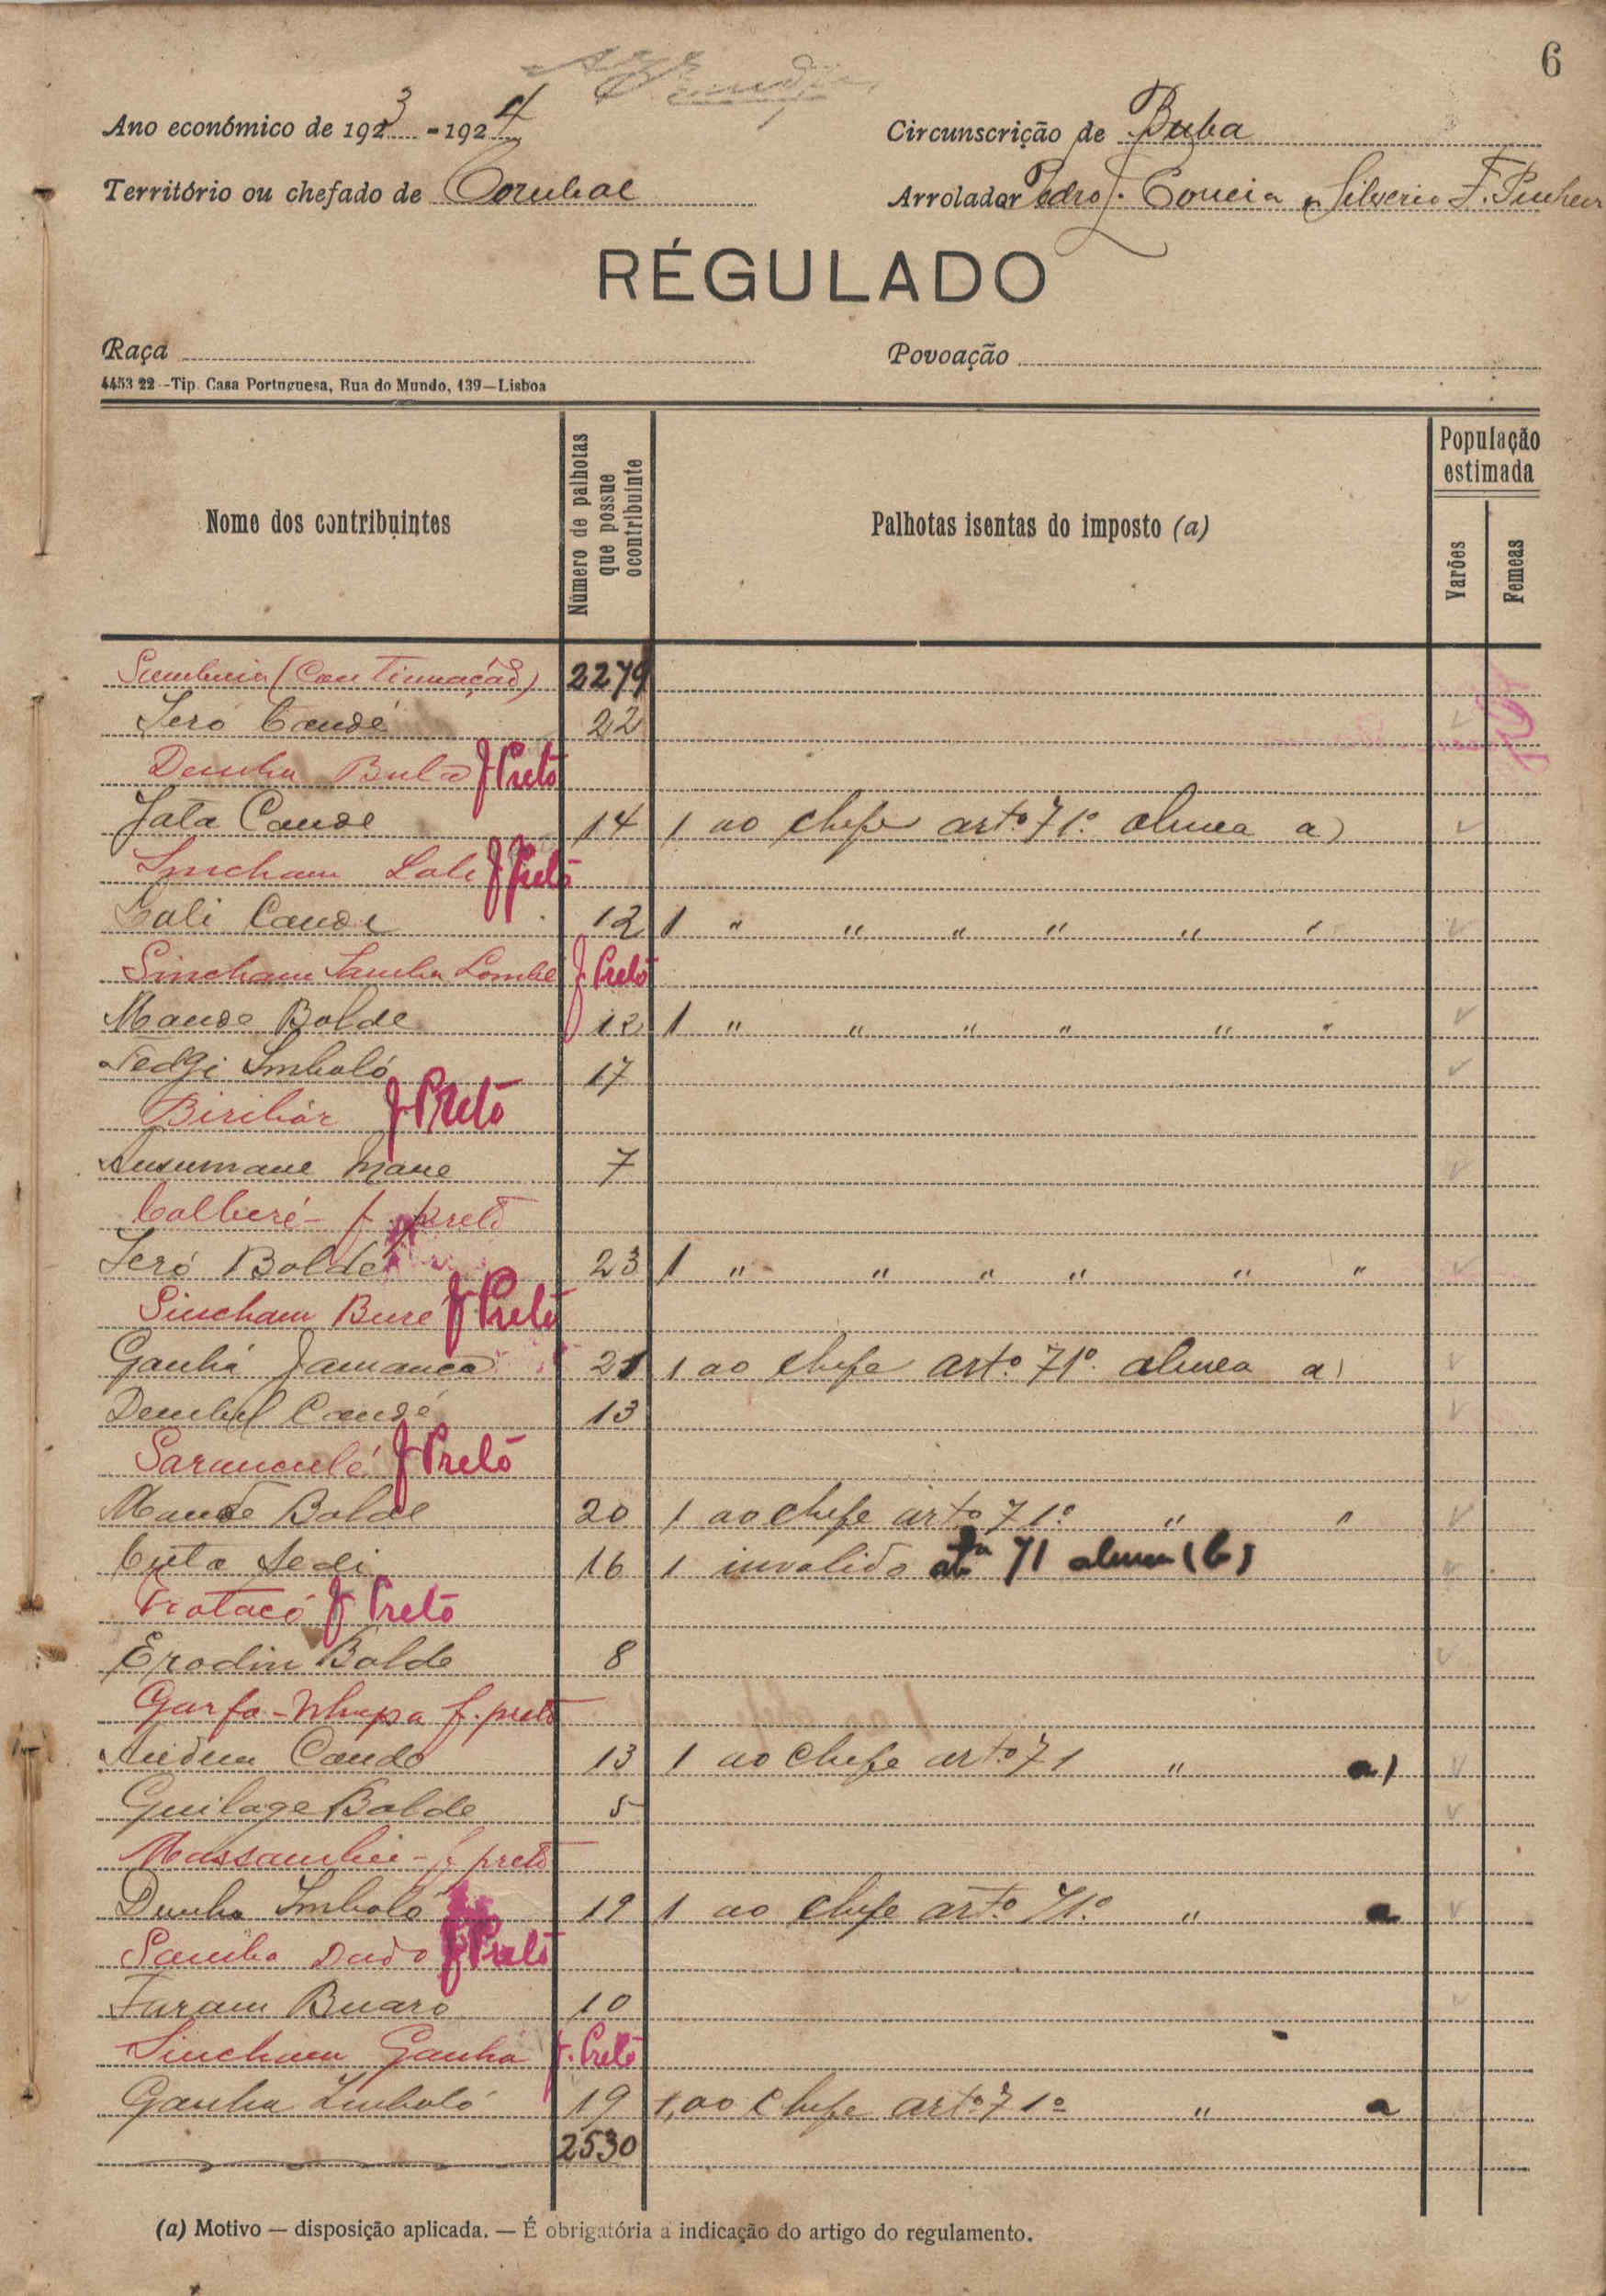 6
Ano económico de 1923-1924
Circunscrição de Buba
Território ou chefado de Corubal
Arrolador Pedro J. Correia e Silverio F. Pinheiro
RÉGULADO
Raça
Povoação
4453 22 -Tip. Casa Portuguesa, Rua do Mundo, 139—Lisboa
Nome dos contribuintes
Número de palhotas que possue o contribuinte
Palhotas isentas do imposto (a)
População estimada
Varões
Femeas
(Continuação) 2279
Seró Candé 22
Demba Bula F. Preto
Jata Cande 14 1 ao chefe artº 71º alinea a)
Sincham Lali F. Preto
Cali Cande 12 1 " " " " " "
Sincham Samba Lombe F. Preto
Mande Balde 12 1 " " " " " "
Imbaló 17
F. Preto
Mane 7
f. preto
Seró Baldé 23 1 " " " " " "
Sincham Bure F. Preto
Ganhá Jamanca 21 1 ao chefe artº 71º alinea a)
Candé 13
Saranculé F. Preto
Mande Balde 20 1 ao chefe artº 71º " "
16 1 invalido artº 71 alinea (b)
F. Preto
Balde 8
f. preto
Cande 13 1 ao chefe artº 71 " a)
Guilage Balde 5
f. preto
Imbaló 19 1 ao chefe artº 71º " a
Samba Dado F. Preto
Buaro 10
Sincham Ganhá F. Preto
Ganha Imbaló 19 1 ao chefe artº 71º " a
2530
(a) Motivo — disposição aplicada. — É obrigatória a indicação do artigo do regulamento.